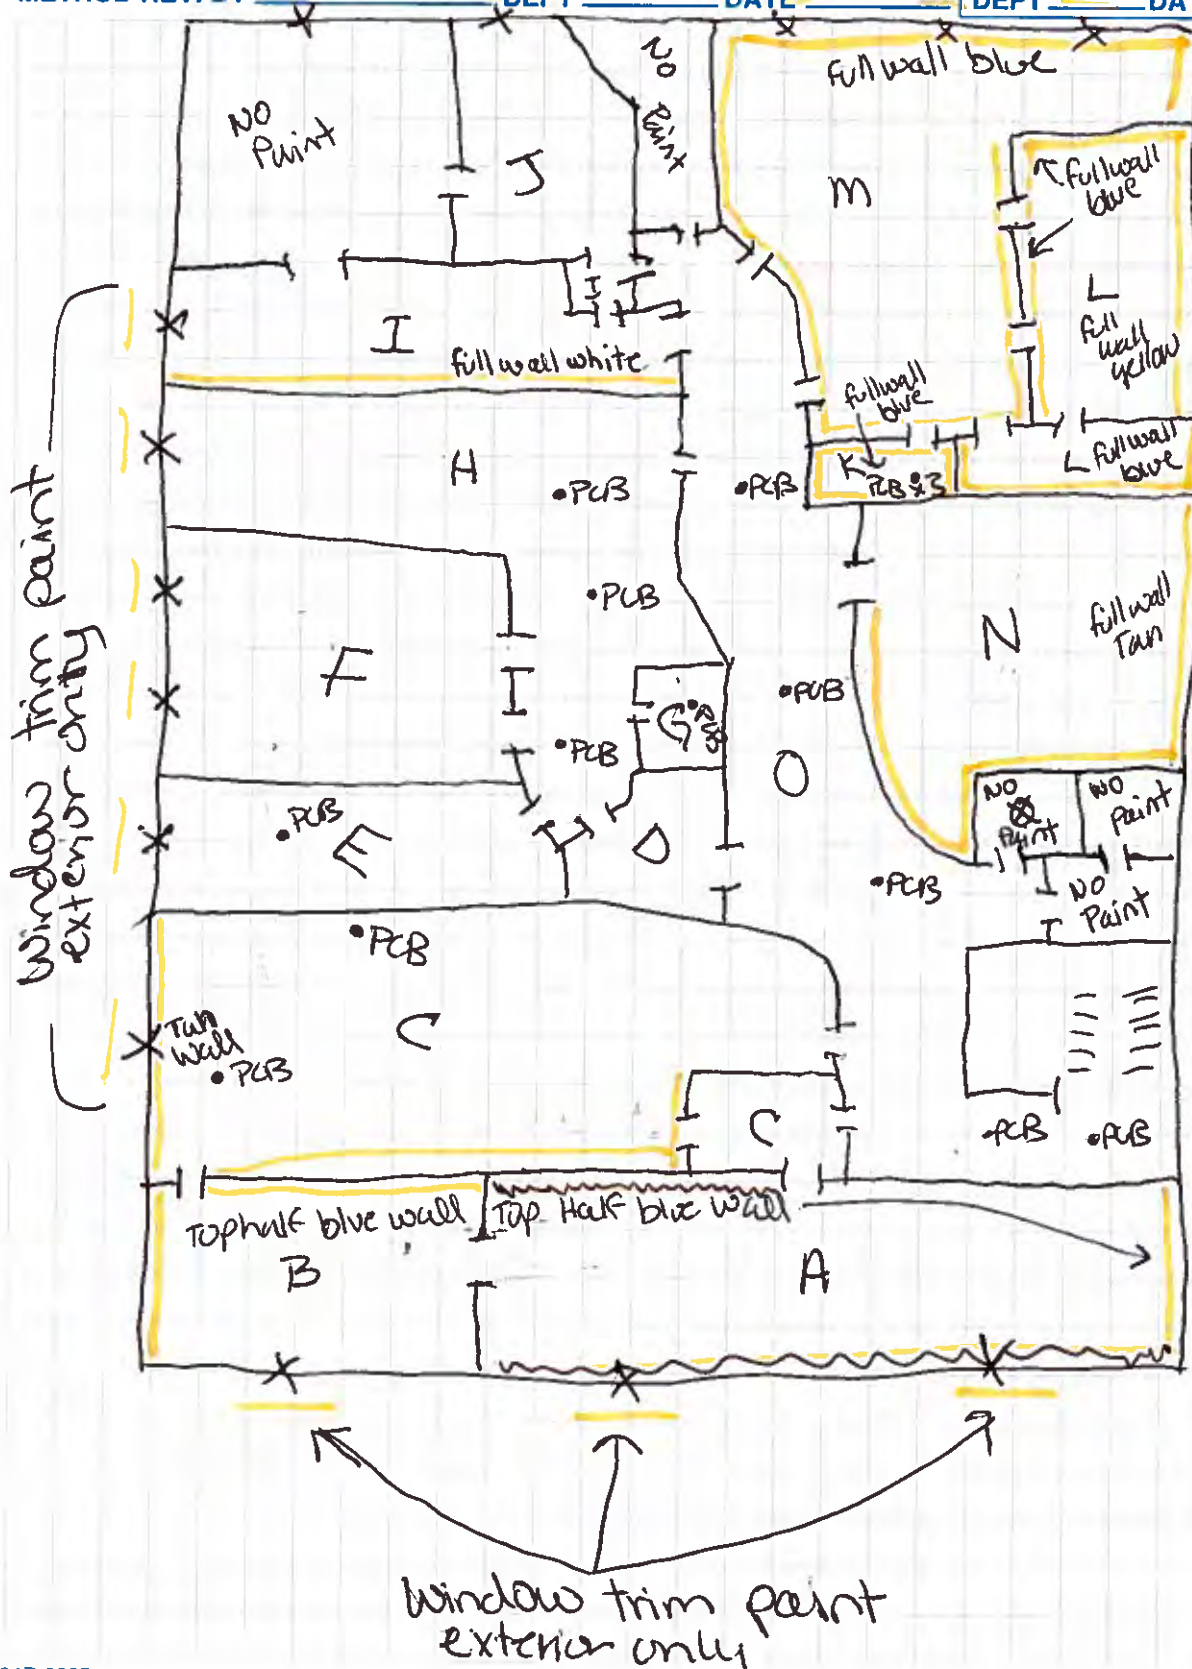 DEPT
DATE
DEPT
DA
NO
Paint
J
NO
Paint
full wall blue
M
full wall
blue
L
full
wall
yellow
I
I
I
full wall white
full wall
blue
K
PCB x3
L full wall
blue
H
•PCB
•PCB
•PCB
N
full wall
Tan
F
I
G
•PCB
•PCB
•PCB
O
NO
Paint
NO
Paint
•PCB
E
D
•PCB
NO
Paint
•PCB
C
Tan
wall
•PCB
C
•PCB
•PCB
Top half blue wall
Top Half blue wall
B
A
Window trim paint
exterior only
Window trim paint
exterior only